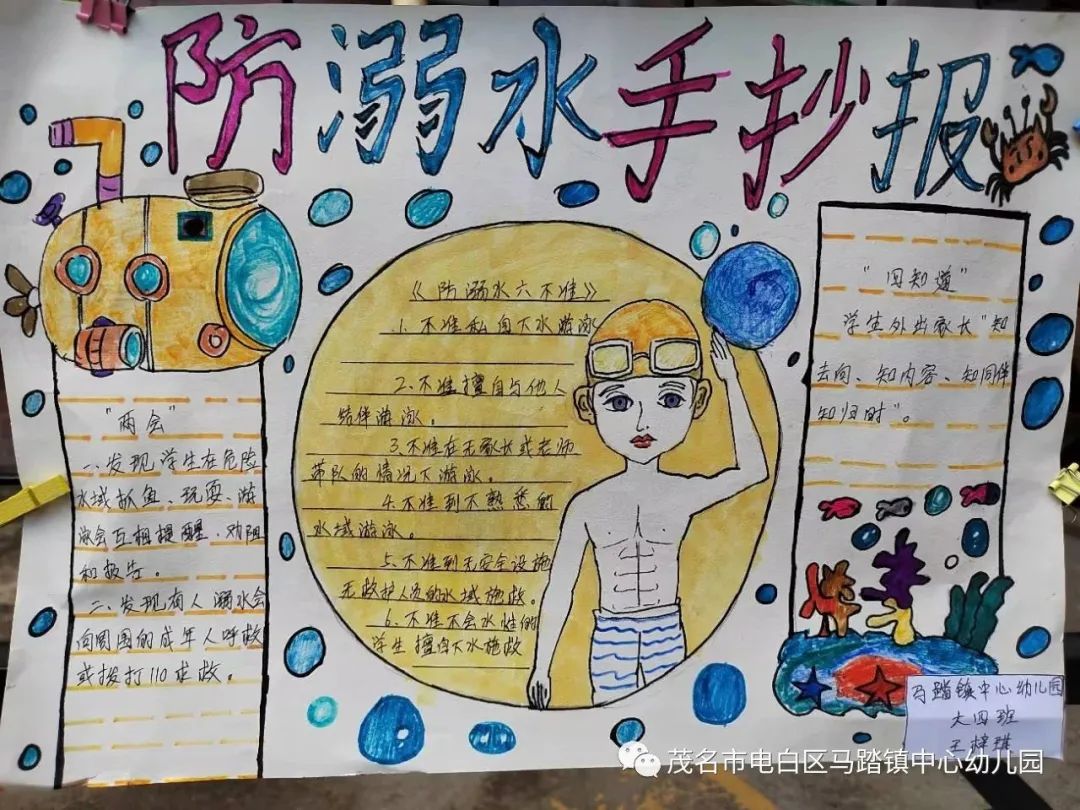 防溺水手抄报
"两会"
一、发现学生在危险
水域抓鱼、玩耍、游
泳会互相提醒、劝阻
和报告。
二、发现有人溺水会
向周围的成年人呼救
或拨打110求救。
《防溺水六不准》
1、不准私自下水游泳
2、不准擅自与他人
结伴游泳。
3、不准在无家长或老师
带队的情况下游泳。
4、不准到不熟悉的
水域游泳。
5、不准到无安全设施
无救护人员的水域施救。
6、不准不会水性的
学生擅自下水施救
"四知道"
学生外出家长"知
去向、知内容、知同伴
知归时"。
马踏镇中心幼儿园
大四班
王梓
茂名市电白区马踏镇中心幼儿园